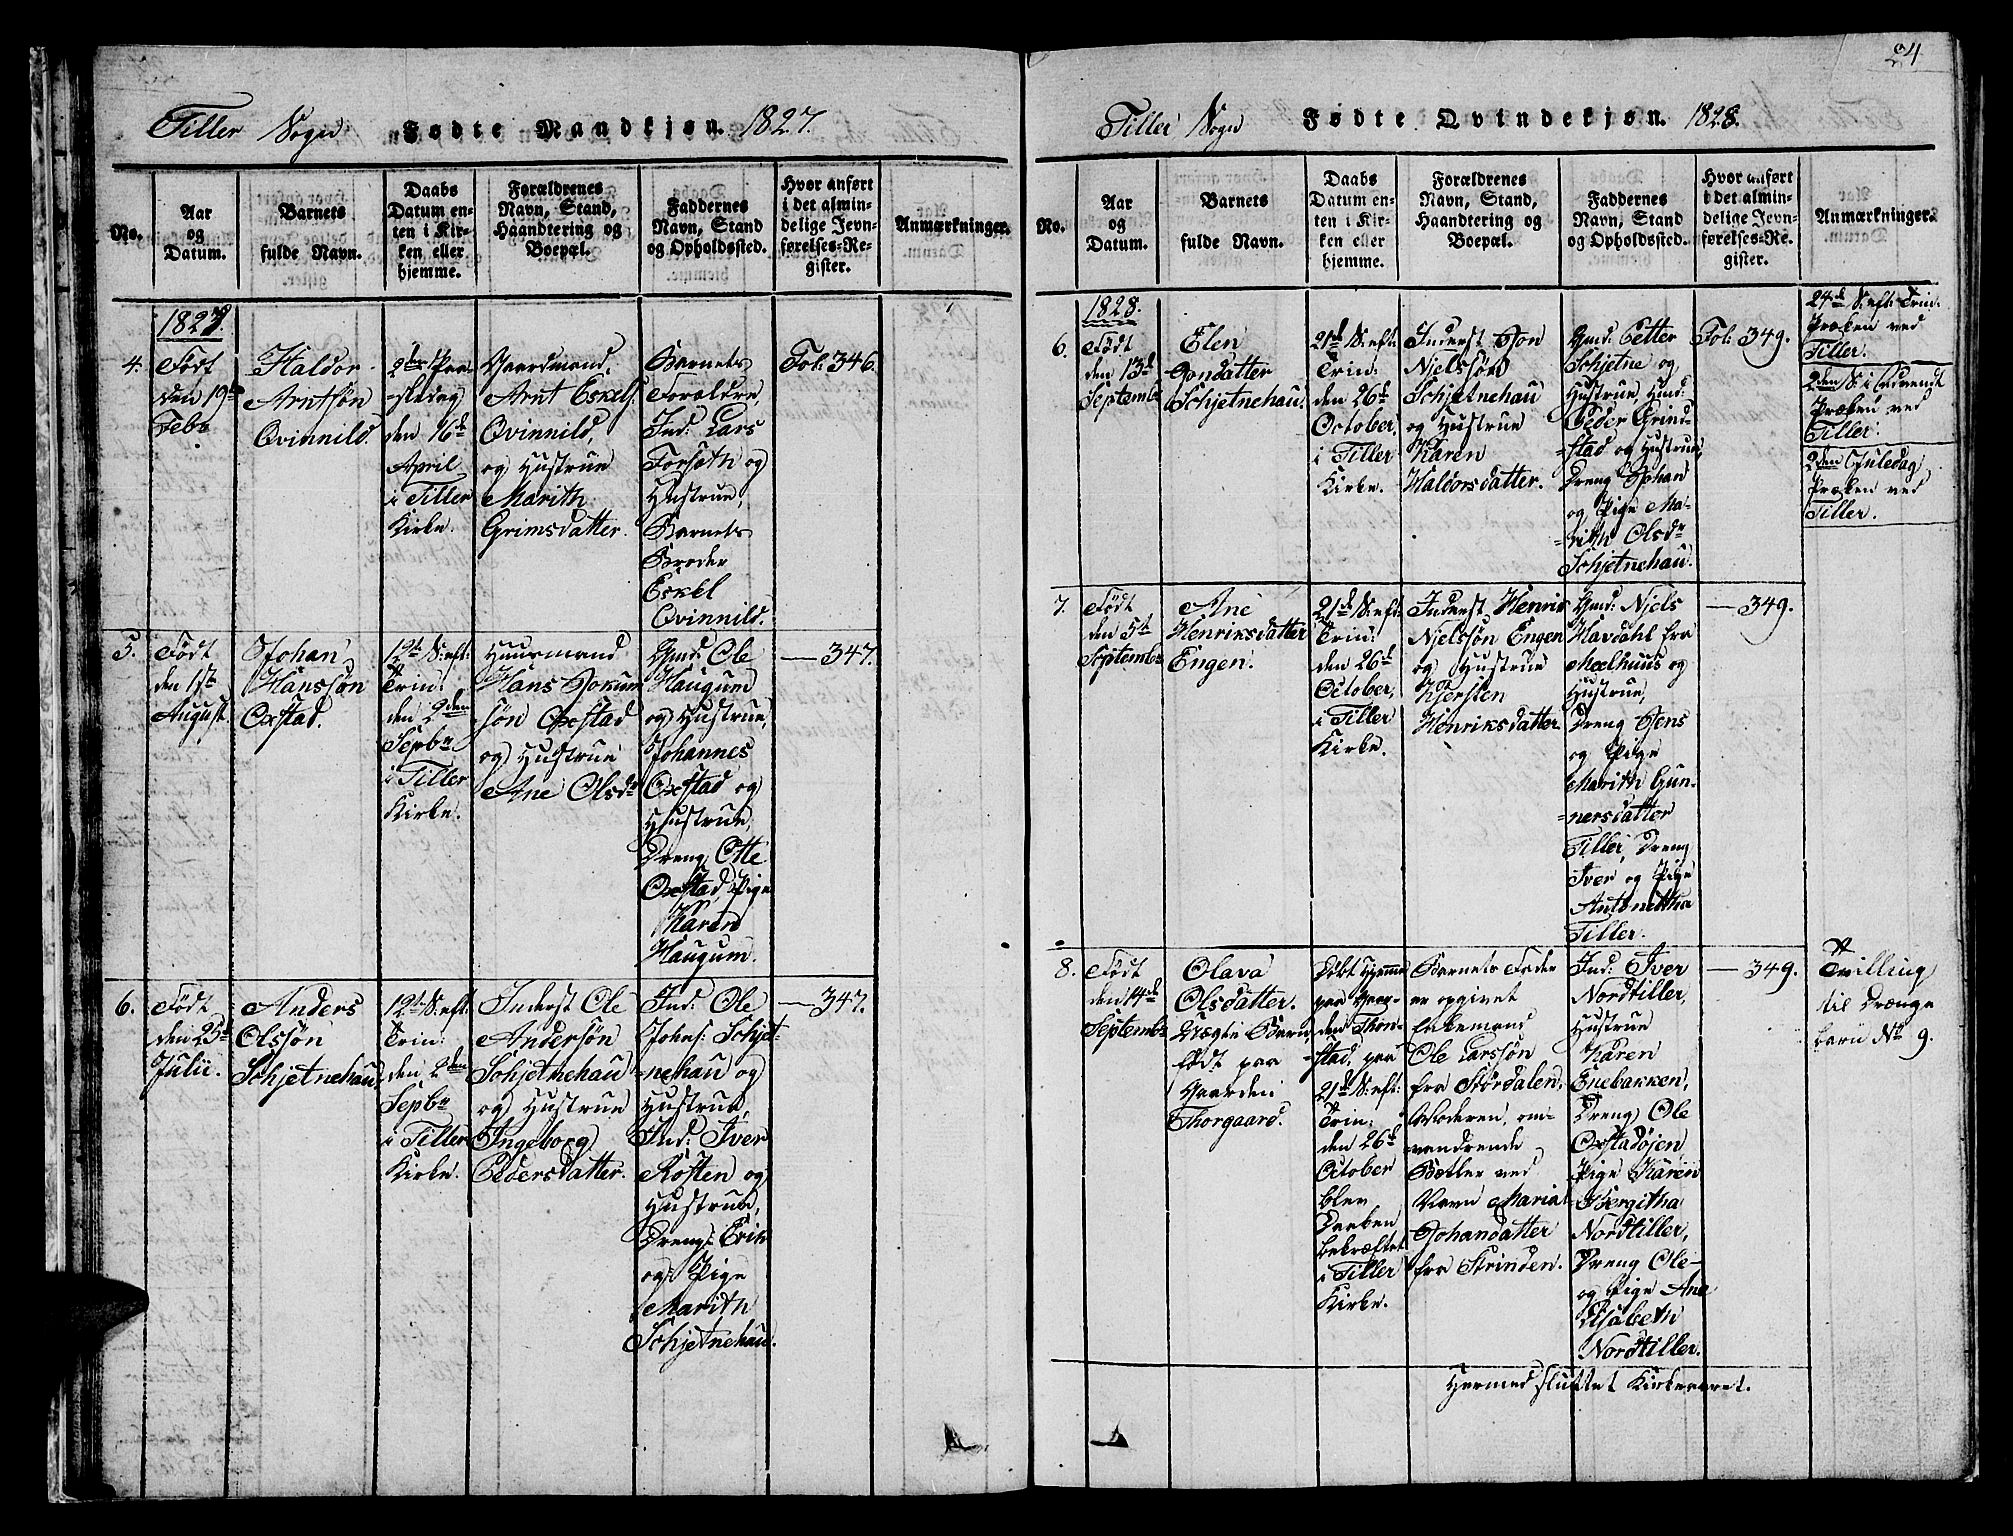 Tiller Sogn Fødte Mandkjøn. 1827.
No.
Aar
og
Datum.
Barnets
fulde Navn.
Daabs
Datum en-
ten i Kir-
ken eller
hjemme.
Forældrenes
Navn, Stand,
Haandtering og
Boepæl.
Faddernes
Navn, Stand
og Opholdssted.
Hvor anført
i det almin-
delige Jevn-
førelses-Re-
gister.
Anmærkninger.
1827
4.
Født
den 19de
Febr
Haldor
Arntsøn
Qvinnild.
2den Paa-
skedag
den 16de
April
i Tiller
Kirke.
Gaardmand,
Arnt Eskels:
Qvinnild,
og Hustrue
Marith
Grimsdatter.
Barnets
Forældre,
Ind: Lars
Forseth og
Hustrue,
Barnets
Broder
Eskel
Qvinnild.
Fol: 346.
5.
Født
den 1ste
August.
Johan
Hanssøn
Oxstad.
12te S: eft:
Trin:
den 2den
Sepbr
i Tiller
Kirke.
Huusmand
Hans Jokum
søn Oxstad
og Hustrue
Ane Olsdr
Gmd: Ole
Haugum
og Hustrue,
Johannes
Oxstad og
Hustrue,
Dreng Otte
Oxstad, Pige
Karen
Haugum.
— 347.
6.
Født
den 25de
Julii.
Anders
Olssøn
Schjetnehau
12te S: eft:
Trin:
den 2den
Sepbr
i Tiller
Kirke.
Inderst Ole
Andersøn
Schjetnehau
og Hustrue
Ingeborg
Pedersdatter.
Ind: Ole
Johns: Schjet-
nehau og
Hustrue,
Ind: Iver
Røsten og
Hustrue,
Dreng: Erik
og Pige
Marith
Schjetnehau.
— 347.
24
Tiller Sogn Fødte Qvindekjøn. 1828.
No.
Aar
og
Datum.
Barnets
fulde Navn.
Daabs
Datum en-
ten i Kir-
ken eller
hjemme.
Forældrenes
Navn, Stand,
Haandtering og
Boepæl.
Faddernes
Navn, Stand
og Opholdssted.
Hvor anført
i det almin-
delige Jevn-
førelses-Re-
gister.
Anmærkninger.
1828.
6.
Født
den 13de
Septembr
Elen
Jonsdatter
Schjetnehau.
21de S: eft:
Trin:
den 26de
October,
i Tiller
Kirke.
Inderst Jon
Nielssøn
Schjetnehau
og Hustrue
Karen
Haldorsdatter.
Gmd: Petter
Schjetne og
Hustrue, Hmd:
Peder Grind-
stad og Hustrue,
Dreng Johan
og Pige Ma-
rith Olsdr
Schjetnehau.
Fol: 349.
24de S: eft: Trin.
Præken ved
Tiller.
2den S: i Advendt
Præken ved
Tiller.
2den Juledag
Præken ved
Tiller.
7.
Født
den 5te
Septembr
Ane
Henriksdatter
Engen.
21de S: eft:
Trin:
den 26de
October,
i Tiller
Kirke.
Inderst Henrik
Nielssøn Engen
og Hustrue
Kjersten
Henriksdatter
Gmd: Niels
Havdahl fra
Meelhuus og
Hustrue,
Dreng Jens
og Pige
Marith Gun-
nersdatter
Tiller, Dreng
Iver og Pige
Antonettha
Tiller.
— 349.
8.
Født
den 14de
Septembr
Olava
Olsdatter.
Uægte Barn
født paa
Gaarden
Thorgaard.
Døbt hjemme
paa Gaar-
den Thon-
stad, paa
21de S: eft:
Trin:
den 26de
October
blev
Daaben
bekræftet
i Tiller
Kirke.
Barnets Fader
er opgivet
Enkemand
Ole Larssøn
fra Størdalen,
Moderen, om-
vandrende
Betler ved
Navn Maria
Johansdatter
fra Strinden.
Ind: Iver
Nordtiller,
Hustrue
Karen
Enebakken,
Dreng Ole
Oxstadøjen
Pige Karen
Bergitha
Nordtiller,
Dreng Ole
og Pige Ane
Elisabeth
Nordtiller.
— 349.
Tvilling
til Drænge
barn No 9.
Hermed sluttet Kirkeaaret.